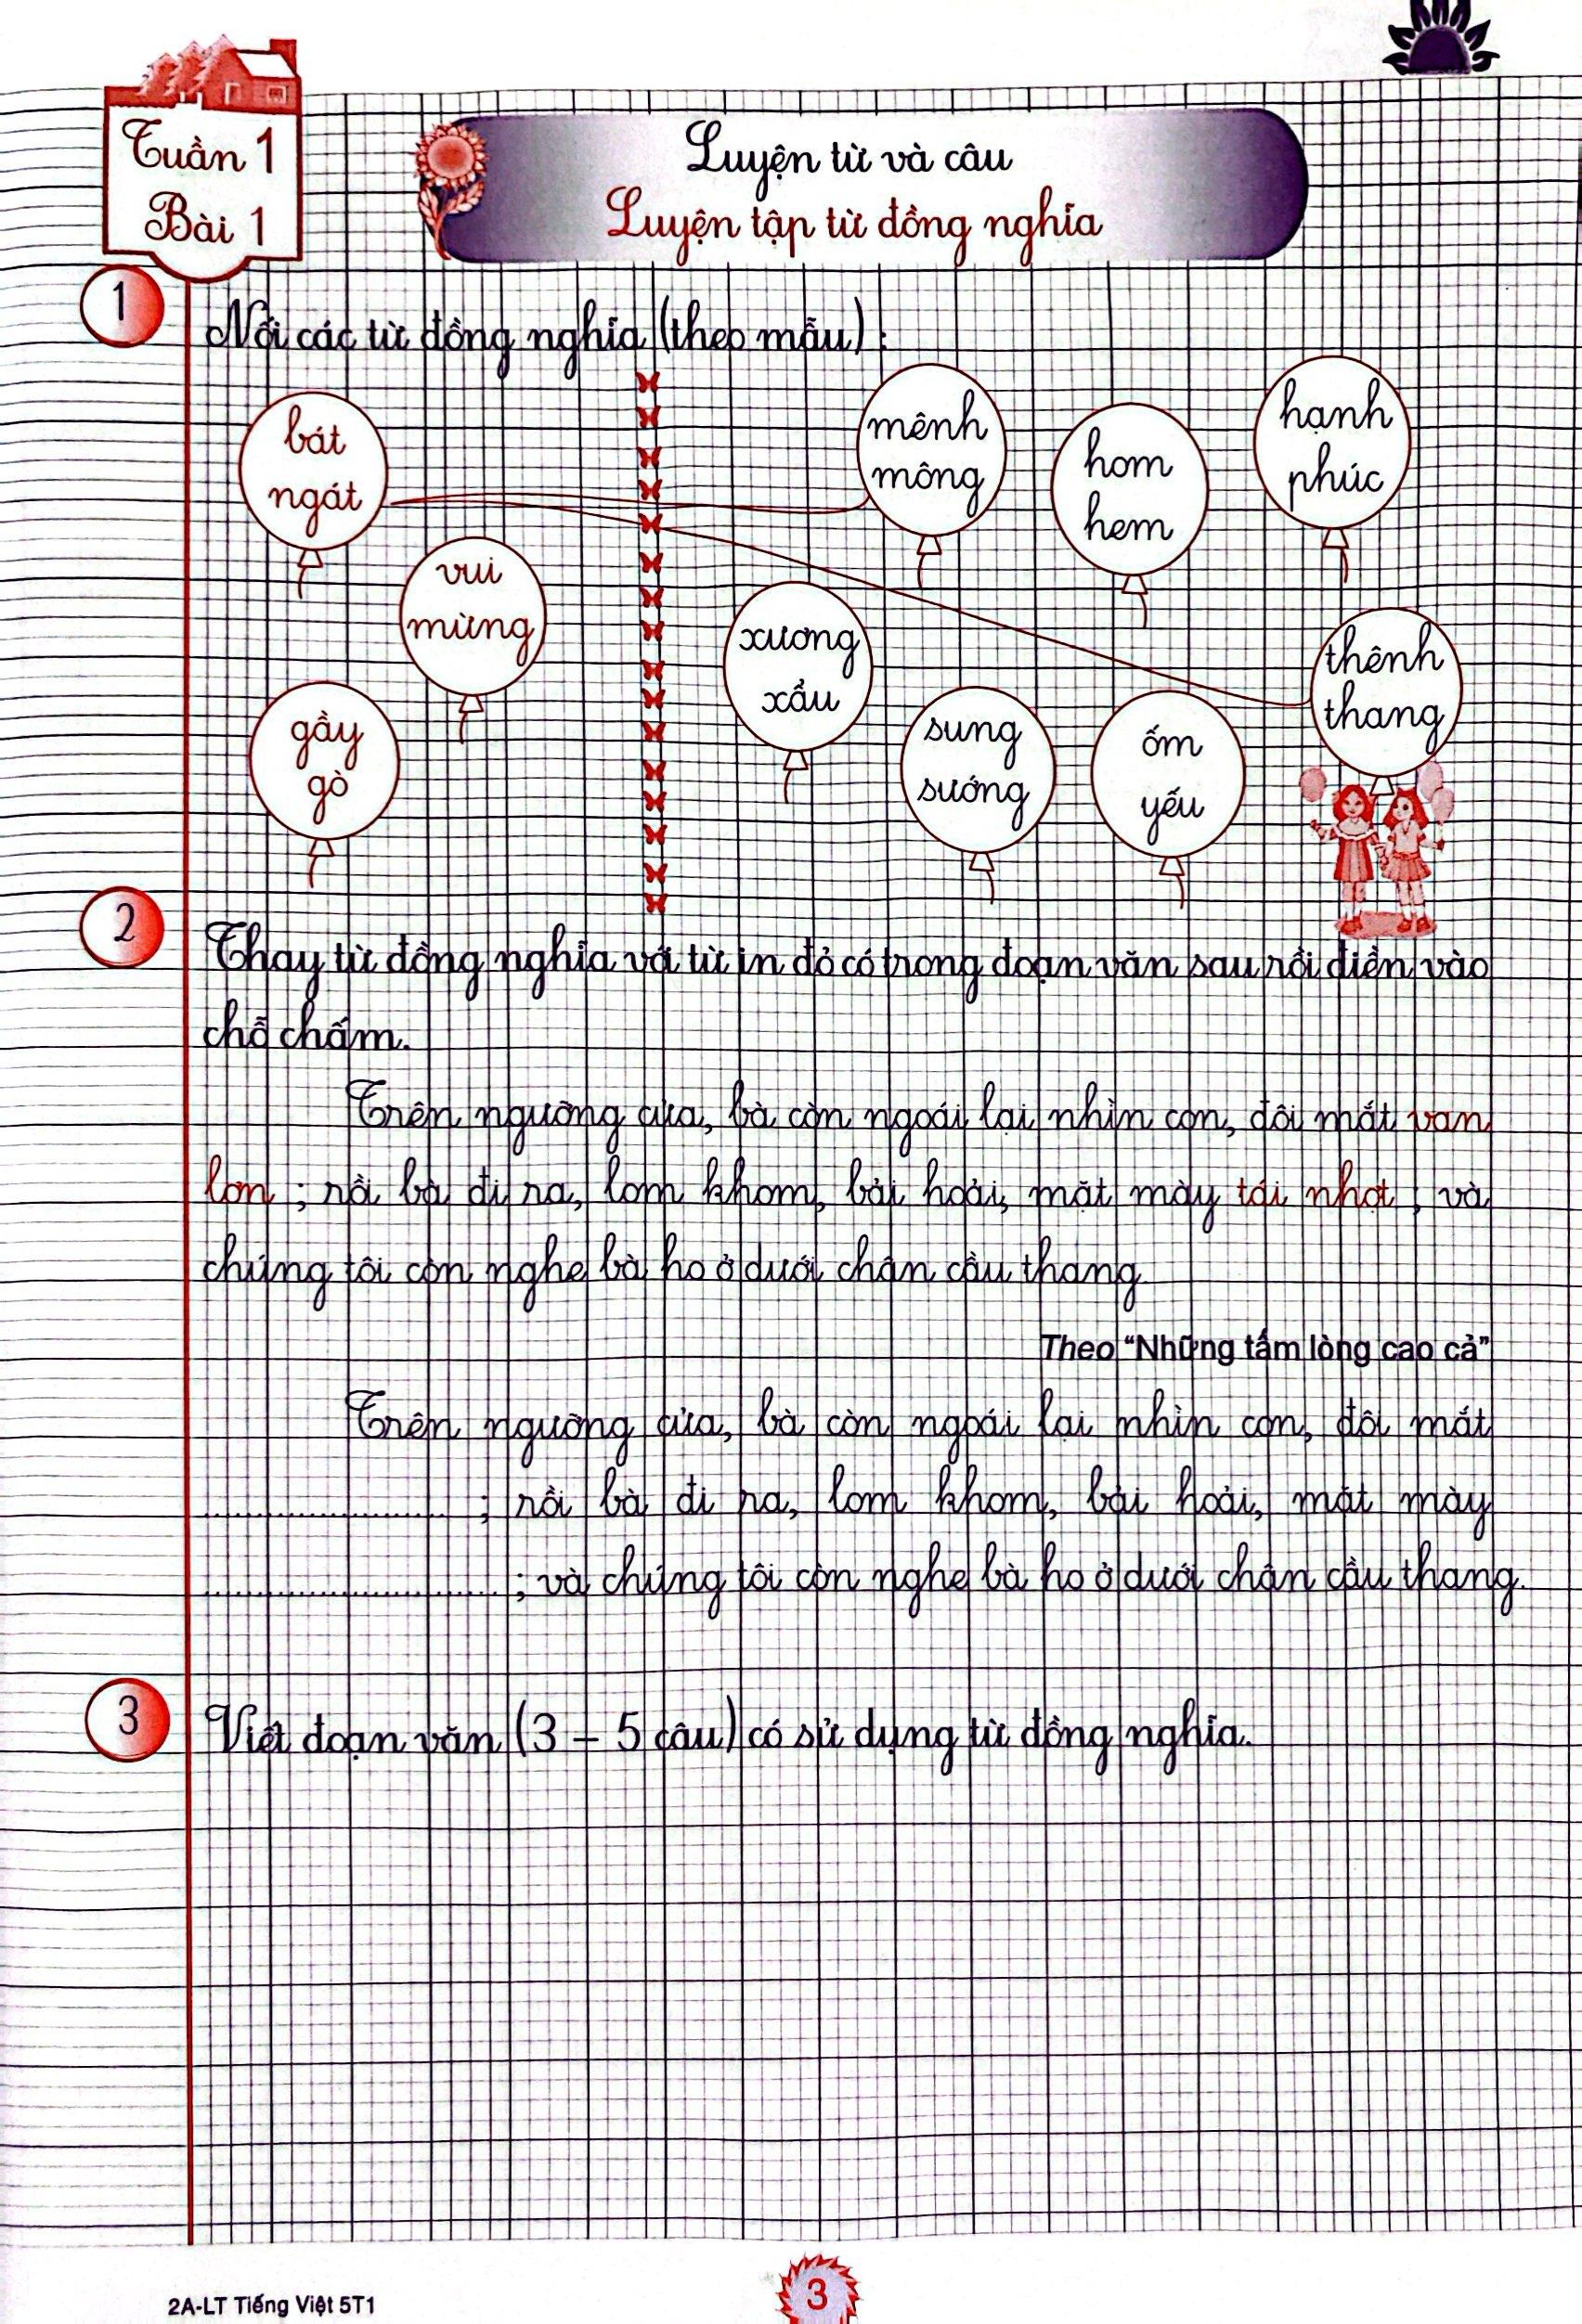 Tuần 1
Bài 1
Luyện từ và câu
Luyện tập từ đồng nghĩa
1
Nối các từ đồng nghĩa (theo mẫu) :
bát
ngát
vui
mừng
gầy
gò
mênh
mông
hom
hem
hạnh
phúc
xương
xẩu
sung
sướng
ốm
yếu
thênh
thang
2
Thay từ đồng nghĩa với từ in đỏ có trong đoạn văn sau rồi điền vào
chỗ chấm.
Trên ngưỡng cửa, bà còn ngoái lại nhìn con, đôi mắt van
lơn ; rồi bà đi ra, lom khom, bải hoải, mặt mày tái nhợt ; và
chúng tôi còn nghe bà ho ở dưới chân cầu thang.
Theo “Những tấm lòng cao cả”
Trên ngưỡng cửa, bà còn ngoái lại nhìn con, đôi mắt
........................ ; rồi bà đi ra, lom khom, bải hoải, mặt mày
.............................. ; và chúng tôi còn nghe bà ho ở dưới chân cầu thang.
3
Viết đoạn văn (3 – 5 câu) có sử dụng từ đồng nghĩa.
2A-LT Tiếng Việt 5T1
3